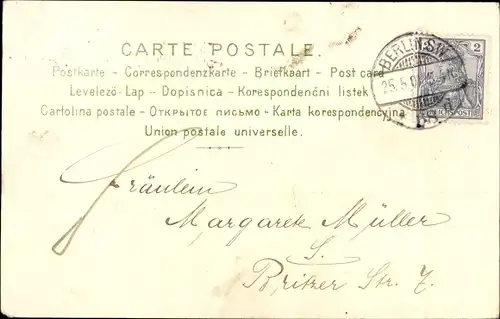 CARTE POSTALE.
Postkarte - Correspondenzkarte - Briefkaart - Post card
Levelező-Lap - Dopisnica - Korespondenční listek
Cartolina postale - Открытое письмо - Karta korespondencyjna
Union postale universelle.
BERLIN S.W.
25.5.0
2
REICHSPOST
Fräulein
Margarete Müller
S.
Britzer Str. 7.